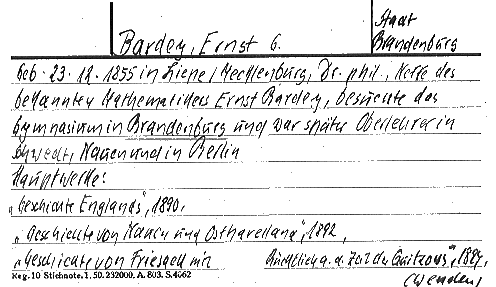 Bardey, Ernst G.
Stadt
Brandenburg
geb. 23.12.1855 in Liepe / Mecklenburg, Dr. phil., Neffe des
bekannten Mathematikers Ernst Bardey, besuchte das
Gymnasium in Brandenburg und war später Oberlehrer in
Schwedt, Nauen und in Berlin
Hauptwerke:
„Geschichte Englands", 1890,
„Geschichte von Nauen und Osthavelland", 1892,
„Geschichte von Friesack mit Rücksicht a. d. Zeit der Quitzows", 1894
Reg. 10 Stichnote. 1. 50. 232000. A. 803. S. 4062
(Wenden)